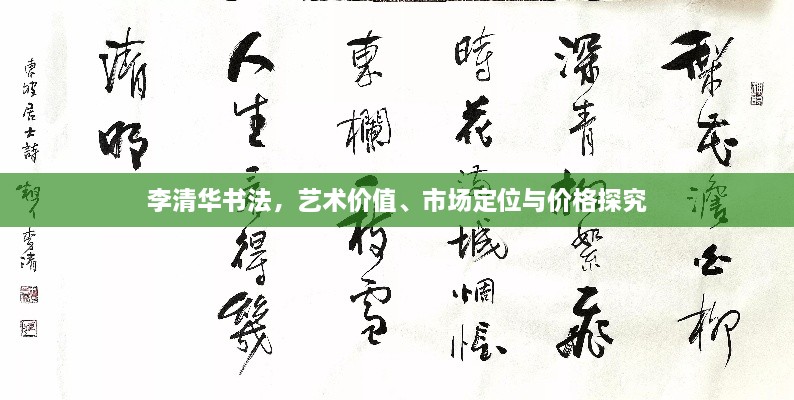 梨花澹白柳
深青柳絮飛
時花滿城惆悵
東欄一株雪
人生看得幾
清明
東坡居士詩
李清
李清华书法，艺术价值、市场定位与价格探究